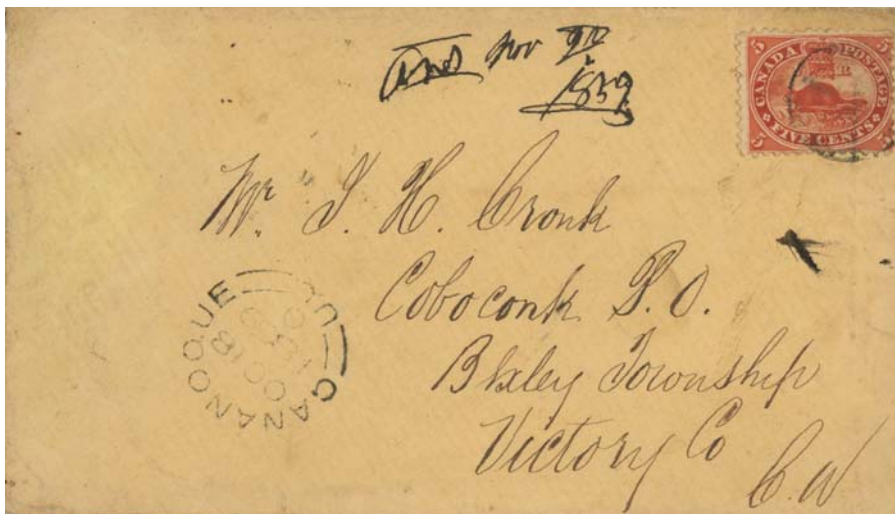 Ans Nov 9th
1859
CANADA POSTAGE
5 5
FIVE CENTS
5 5
Mr. J. H. Cronk
Coboconk P. O.
Bexley Township
Victory Co
C. W
GANANOQUE